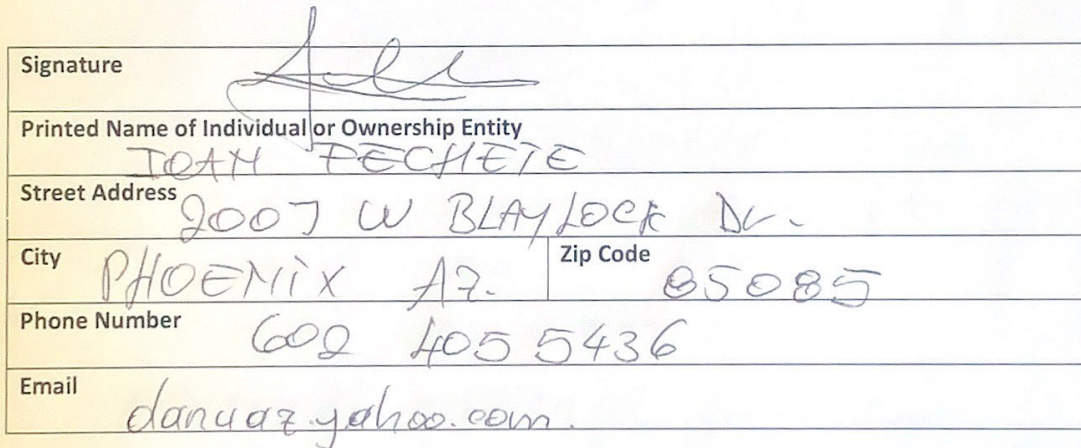 Signature
Printed Name of Individual or Ownership Entity
IOAN PECHETE
Street Address 2007 W BLAYLOCK Dr.
City PHOENIX AZ. Zip Code 85085
Phone Number 602 405 5436
Email danuaz.yahoo.com.